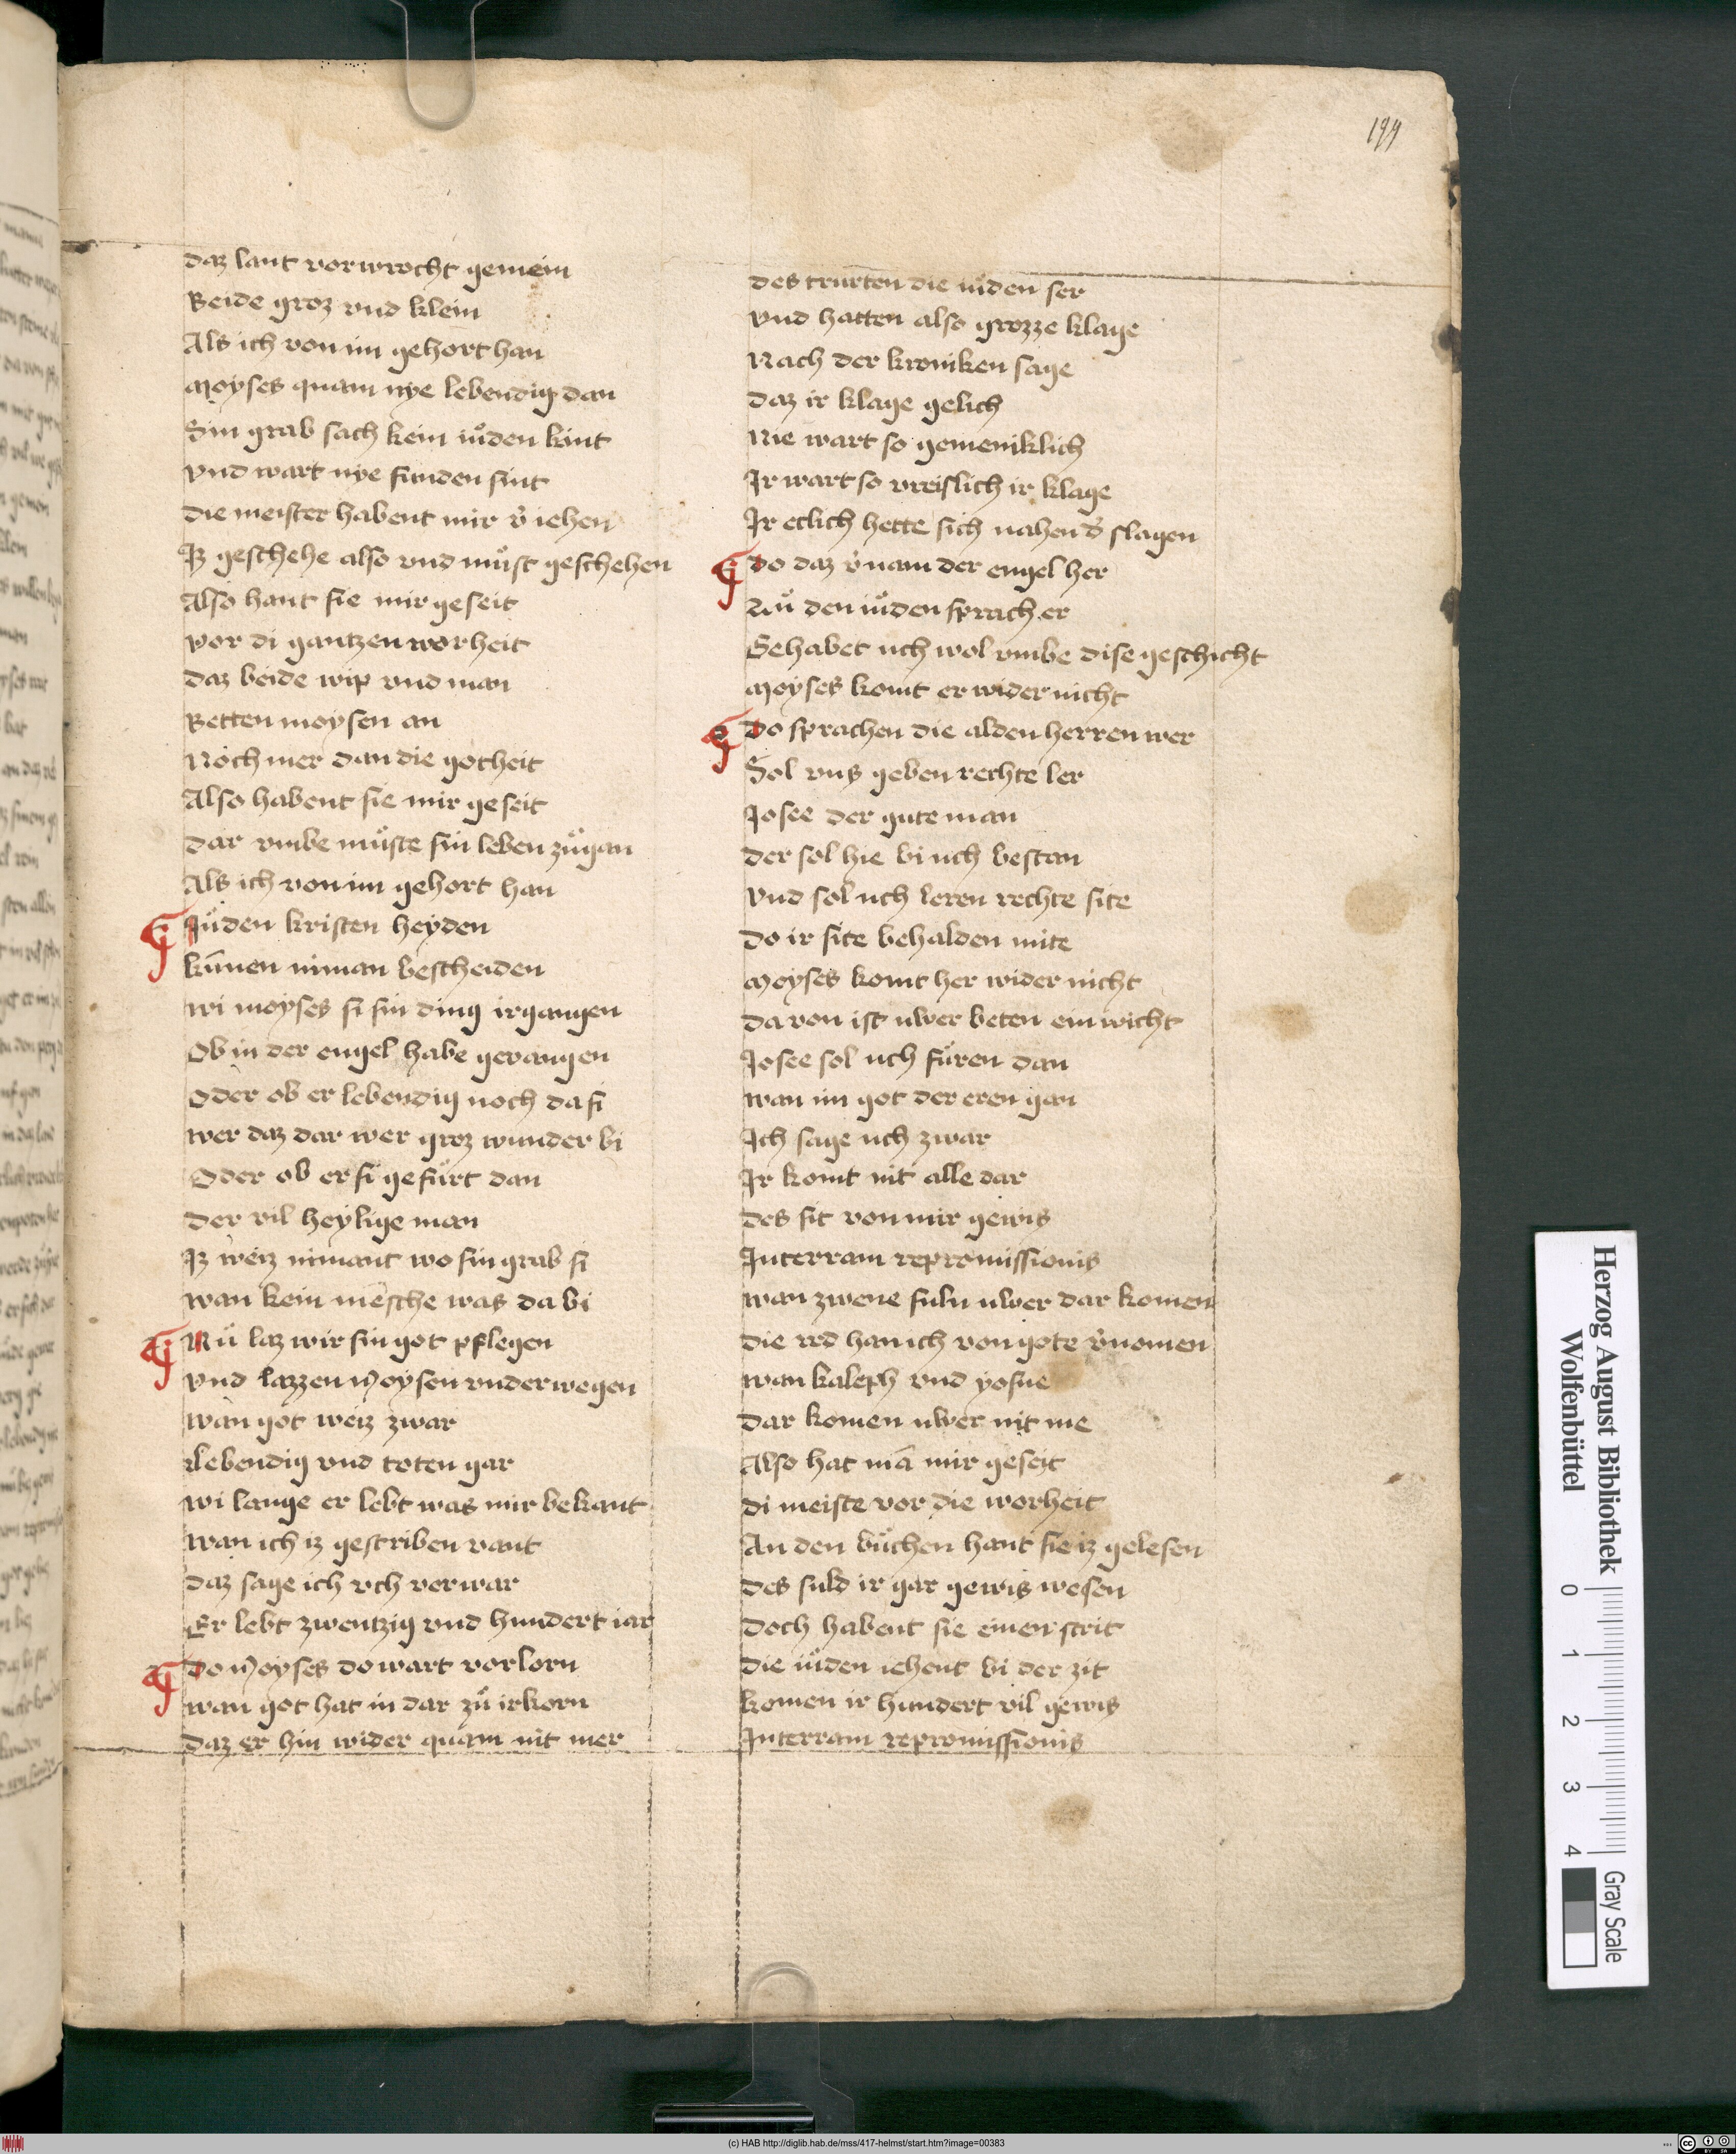 199
daz lant vorworcht gemein
Beide groz vnd klein
Als ich von im gehort han
Moyses quam nye lebendig dan
Sin grab sach kein iůden kint
vnd wart nye funden sint
die meister habent mir v̄ iehen
Iz geschehe also vnd můst geschehen
Also hant sie mir geseit
vor di gantzen worheit
daz beide wip vnd man
Betten moysen an
Noch mer dan die gotheit
Also habent sie mir geseit
dar vmbe můste sin leben zůgan
Als ich von im gehort han
Iůden kristen heyden
kūnen niman bescheiden
wi moyses si sin ding irgangen
Ob in der engel habe gevangen
Oder ob er lebendig noch da si
wer daz dar wer groz wunder bi
Oder ob er si gefůrt dan
der vil heylige man
Iz weiz nimant wo sin grab si
wan kein mēsche was da bi
Nů laz wir sin got pflegen
vnd lazzen Moysen vnderwegen
wan got weiz zwar
Lebendig vnd toten gar
wi lange er lebt was mir bekant
wan ich iz gestriben vant
daz sage ich vch vorwar
Er lebt zwentzig vnd hundert iar
do Moyses do wart vorlorn
wan got hat in dar zů irkorn
daz er hin wider quam nit mer
des trurten die iůden ser
vnd hatten also grozze klage
Nach der kroniken sage
daz ir klage gelich
Nie wart so gemeniklich
Ir wart so vreislich ir klage
Ir etlich hette sich nahen d̄ slagen
do daz v̄nam der engel her
Zů den iůden sprach er
Gehabet uch wol vmbe dise geschicht
Moyses komt er wider nicht
do sprachen die alden herren wer
Sol vns geben rechte ler
Josee der gute man
der sol hie bi uch bestan
vnd sol uch leren rechte site
do ir site behalden mite
Moyses komt her wider nicht
da von ist uwer beten ein wicht
Josee sol uch fůren dan
wan im got der eren gan
Ich sage uch zwar
Ir komt nit alle dar
des sit von mir gewis
Interram repromissionis
wan zwene suln uwer dar komen
die red han ich von gote v̄nomen
wan kaleph vnd yosue
dar komen uwer nit me
Also hat mā mir geseit
di meiste vor die worheit
An den bůchen hant sie iz gelesen
des suld ir gar gewis wesen
Doch habent sie einen strit
die iůden iehent bi der zit
komen ir hundert vil gewis
Interram repromissionis
Herzog August Bibliothek
Wolfenbüttel
0 1 2 3 4
Gray Scale
(c) HAB http://diglib.hab.de/mss/417-helmst/start.htm?image=00383